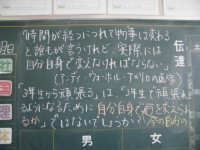 「時間が経つにつれて物事は変わる
と誰もが言うけれど、実際には
自分自身で変えなければならない。」
(アンディ・ウォーホル・アメリカの画家)
「3年生から頑張る」は、「3年生で頑張れ
るようになるために自分自身で何を変えられ
るか」ではないでしょうか？今の自分の
伝達
男
女